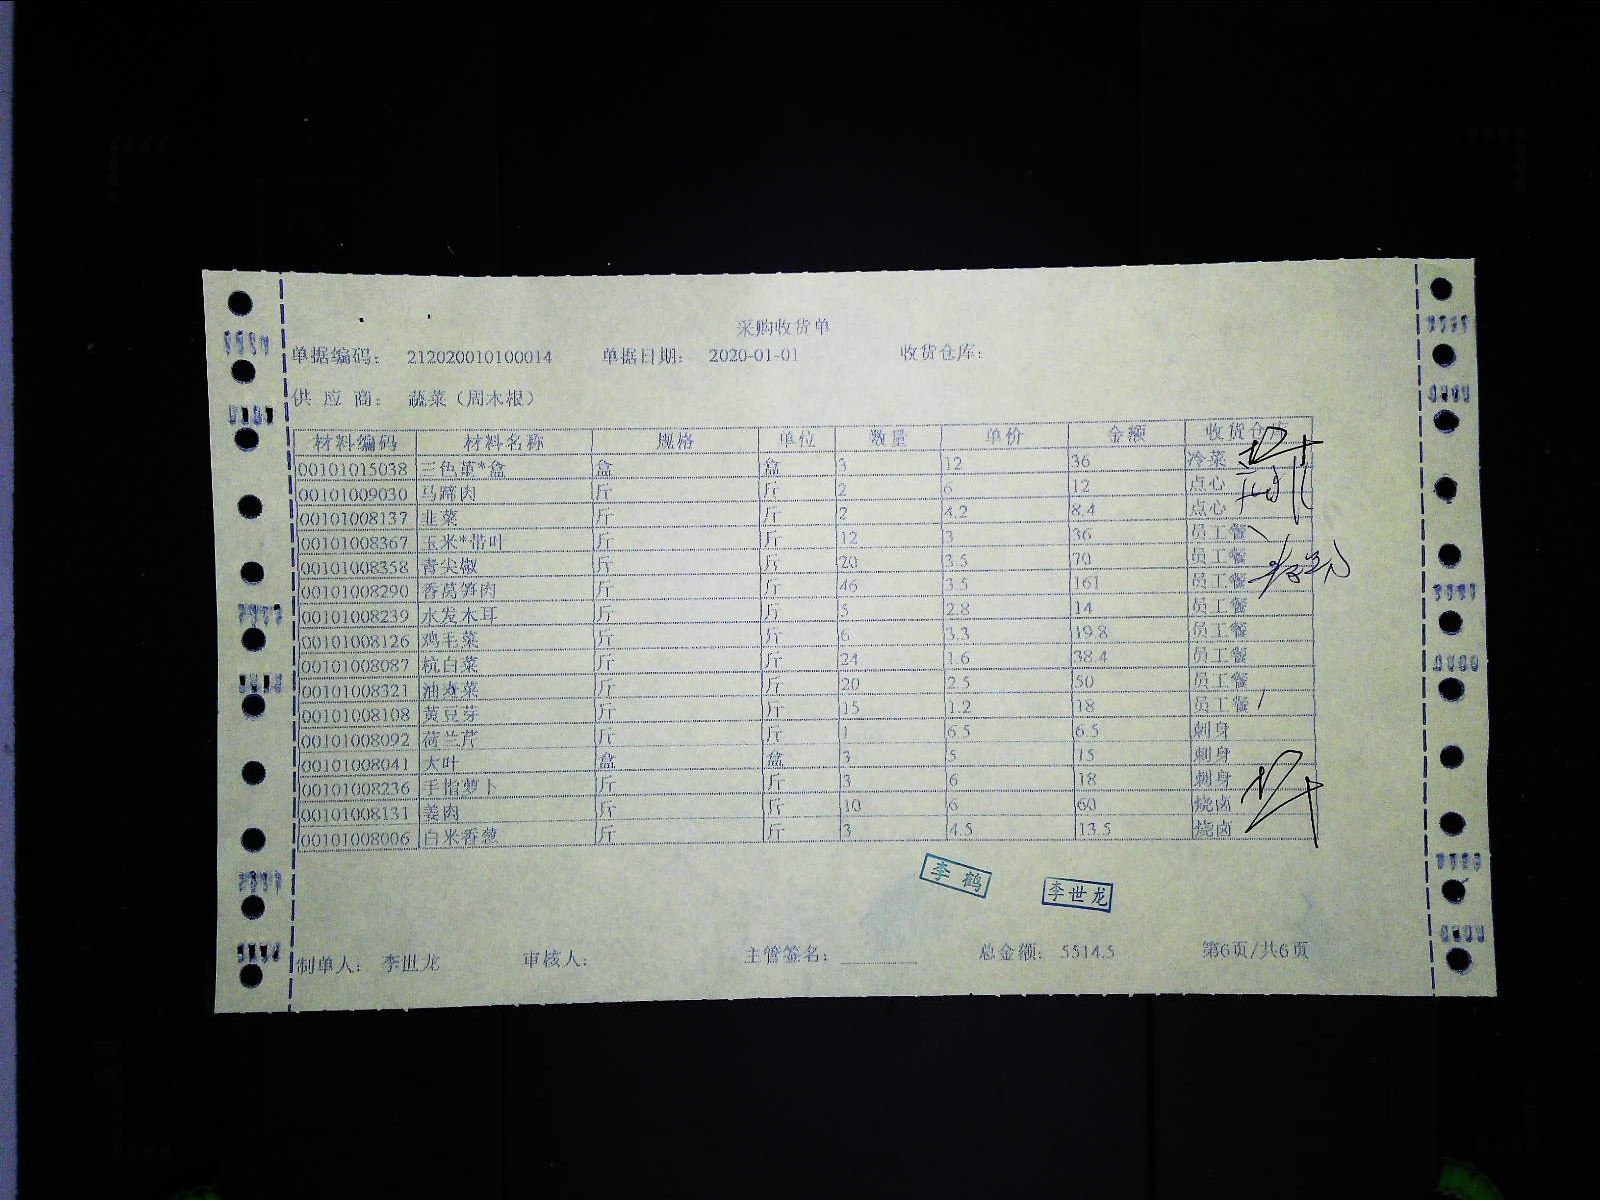 采购收货单
单据编码： 212020010100014 单据日期： 2020-01-01 收货仓库：
供 应 商： 蔬菜（周木根）
材料编码 材料名称 规格 单位 数量 单价 金额 收货仓库
00101015038 三色堇*盒 盒 盒 3 12 36 冷菜
00101009030 马蹄肉 斤 斤 2 6 12 点心
00101008137 韭菜 斤 斤 2 4.2 8.4 点心
00101008367 玉米*带叶 斤 斤 12 3 36 员工餐
00101008358 青尖椒 斤 斤 20 3.5 70 员工餐
00101008290 香莴笋肉 斤 斤 46 3.5 161 员工餐
00101008239 水发木耳 斤 斤 5 2.8 14 员工餐
00101008126 鸡毛菜 斤 斤 6 3.3 19.8 员工餐
00101008087 杭白菜 斤 斤 24 1.6 38.4 员工餐
00101008321 油麦菜 斤 斤 20 2.5 50 员工餐
00101008108 黄豆芽 斤 斤 15 1.2 18 员工餐
00101008092 荷兰芹 斤 斤 1 6.5 6.5 刺身
00101008041 大叶 盒 盒 3 5 15 刺身
00101008236 手指萝卜 斤 斤 3 6 18 刺身
00101008131 姜肉 斤 斤 10 6 60 烧卤
00101008006 白米香葱 斤 斤 3 4.5 13.5 烧卤
李鹤 李世龙
制单人： 李世龙 审核人： 主管签名： 总金额： 5514.5 第6页/共6页